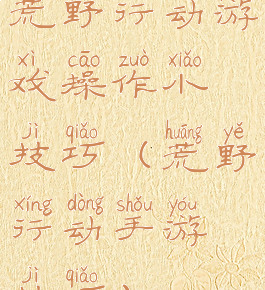 荒野行动游
xì cāo zuò xiǎo
戏操作小
jì qiǎo huāng yě
技巧（荒野
xíng dòng shǒu yóu
行动手游
jì qiǎo